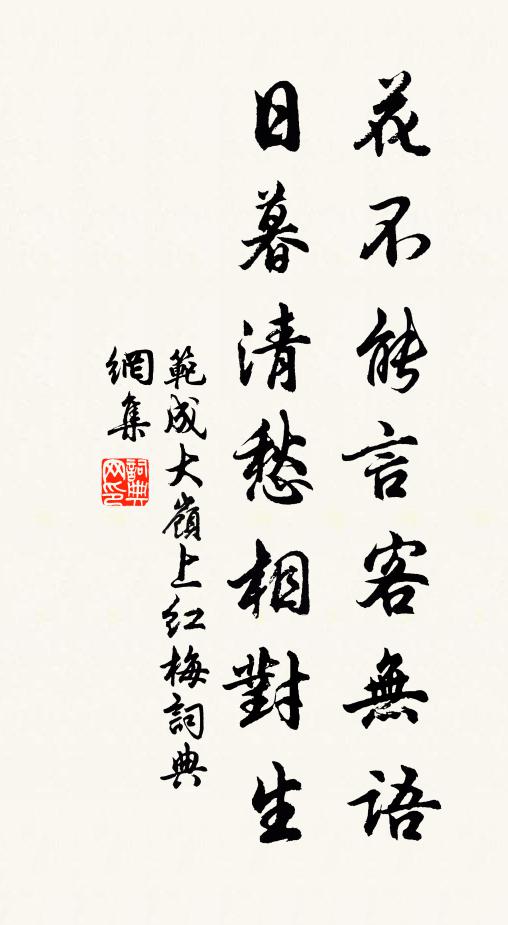 花不能言客無語
日暮清愁相對生
範成大嶺上紅梅詞典
網集
詞典網印